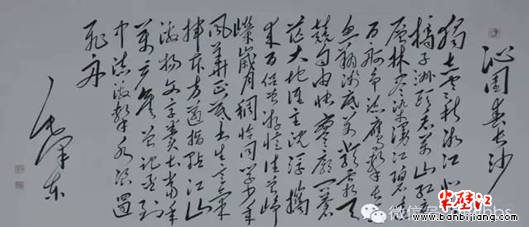 沁园春长沙
独立寒秋湘江北去
橘子洲头看万山红遍
层林尽染漫江碧透
百舸争流鹰击长空
鱼翔浅底万类霜天
竞自由怅寥廓问苍
茫大地谁主沉浮携
来百侣曾游忆往昔峥
嵘岁月稠恰同学少年
风华正茂书生意气
挥斥方遒指点江山
激扬文字粪土当年
万户侯曾记否到
中流击水浪遏
飞舟
毛泽东
微信号
半壁江
www.banbijiang.com